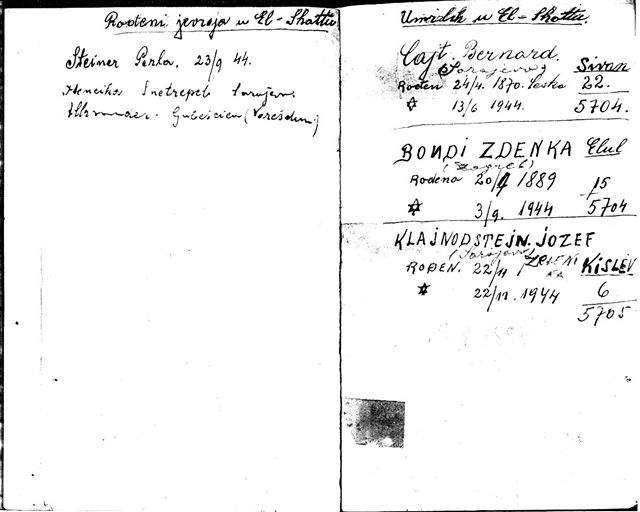 Rođeni jevreja u El-Shattu
Steiner Perla, 23/9 44.
Sarajevo
(Varešdin)
Umrlih u El-Shattu.
Cajt. Bernard.
(Sarajevo) Sivan
Rođen 24/4. 1870. 22.
✡ 13/6 1944. 5704.
BONDI ZDENKA Elul
(Zagreb)
Rođena 20/4 1889 15
✡ 3/9. 1944 5704
KLAJNODSTEJN. JOZEF
(Sarajevo) ZELENI KISLEV
ROĐEN. 22/11
✡ 22/11. 1944 6
5705